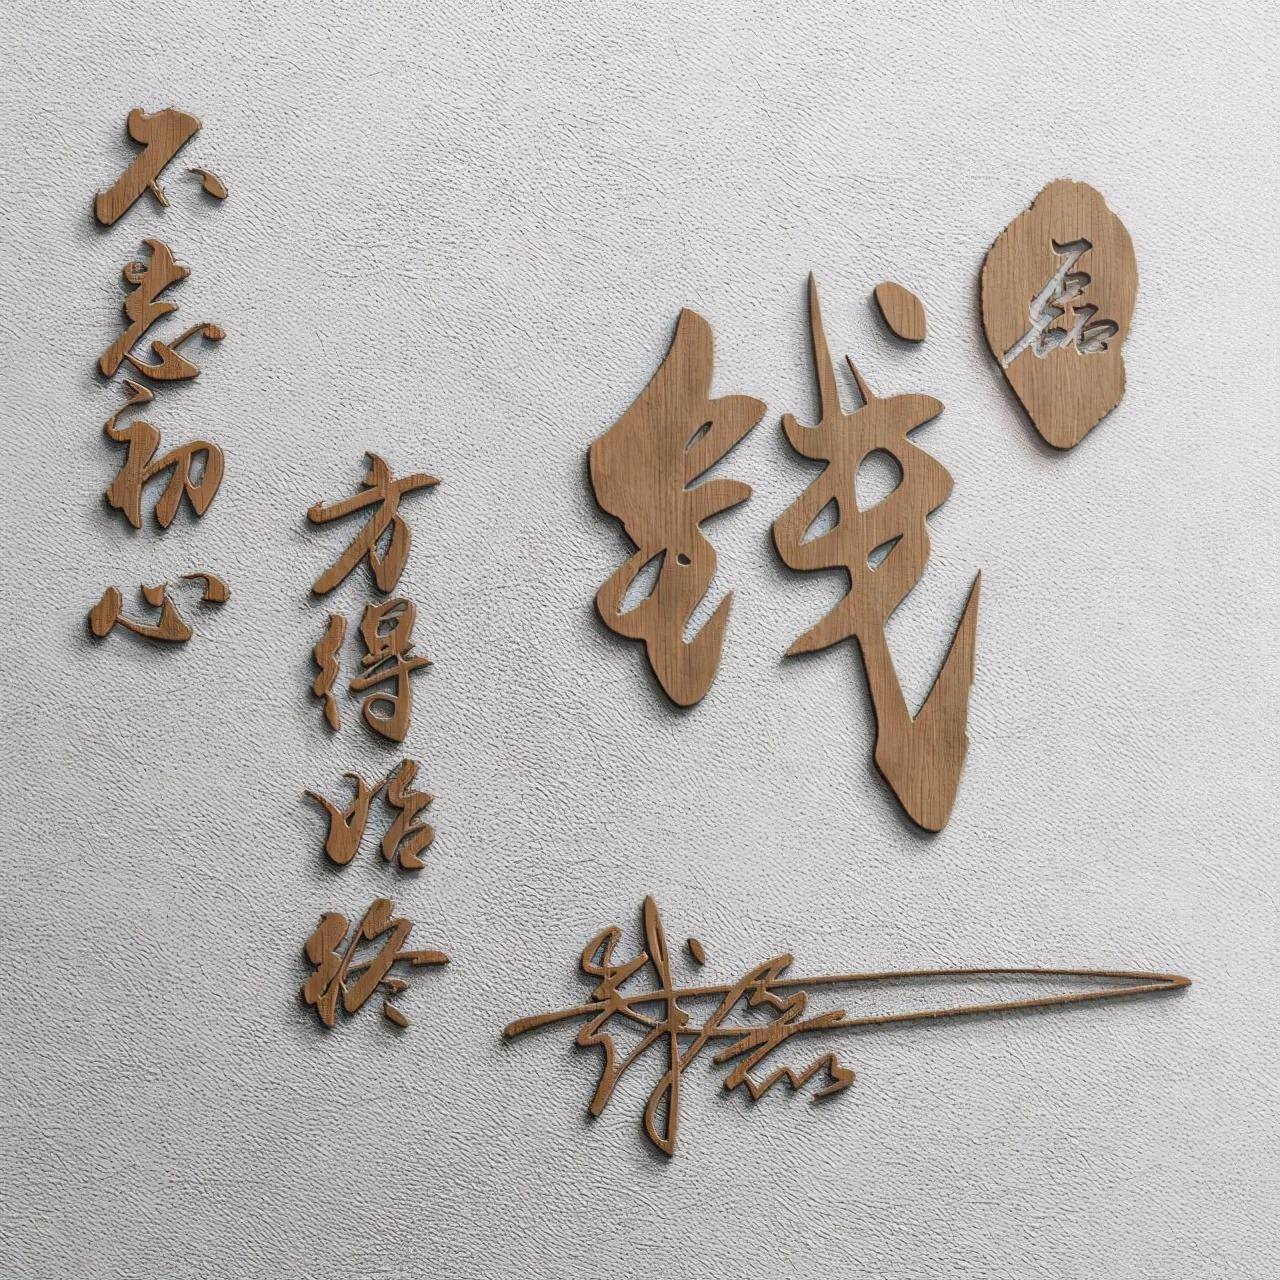 不忘初心
方得始终
钱
磊
钱磊